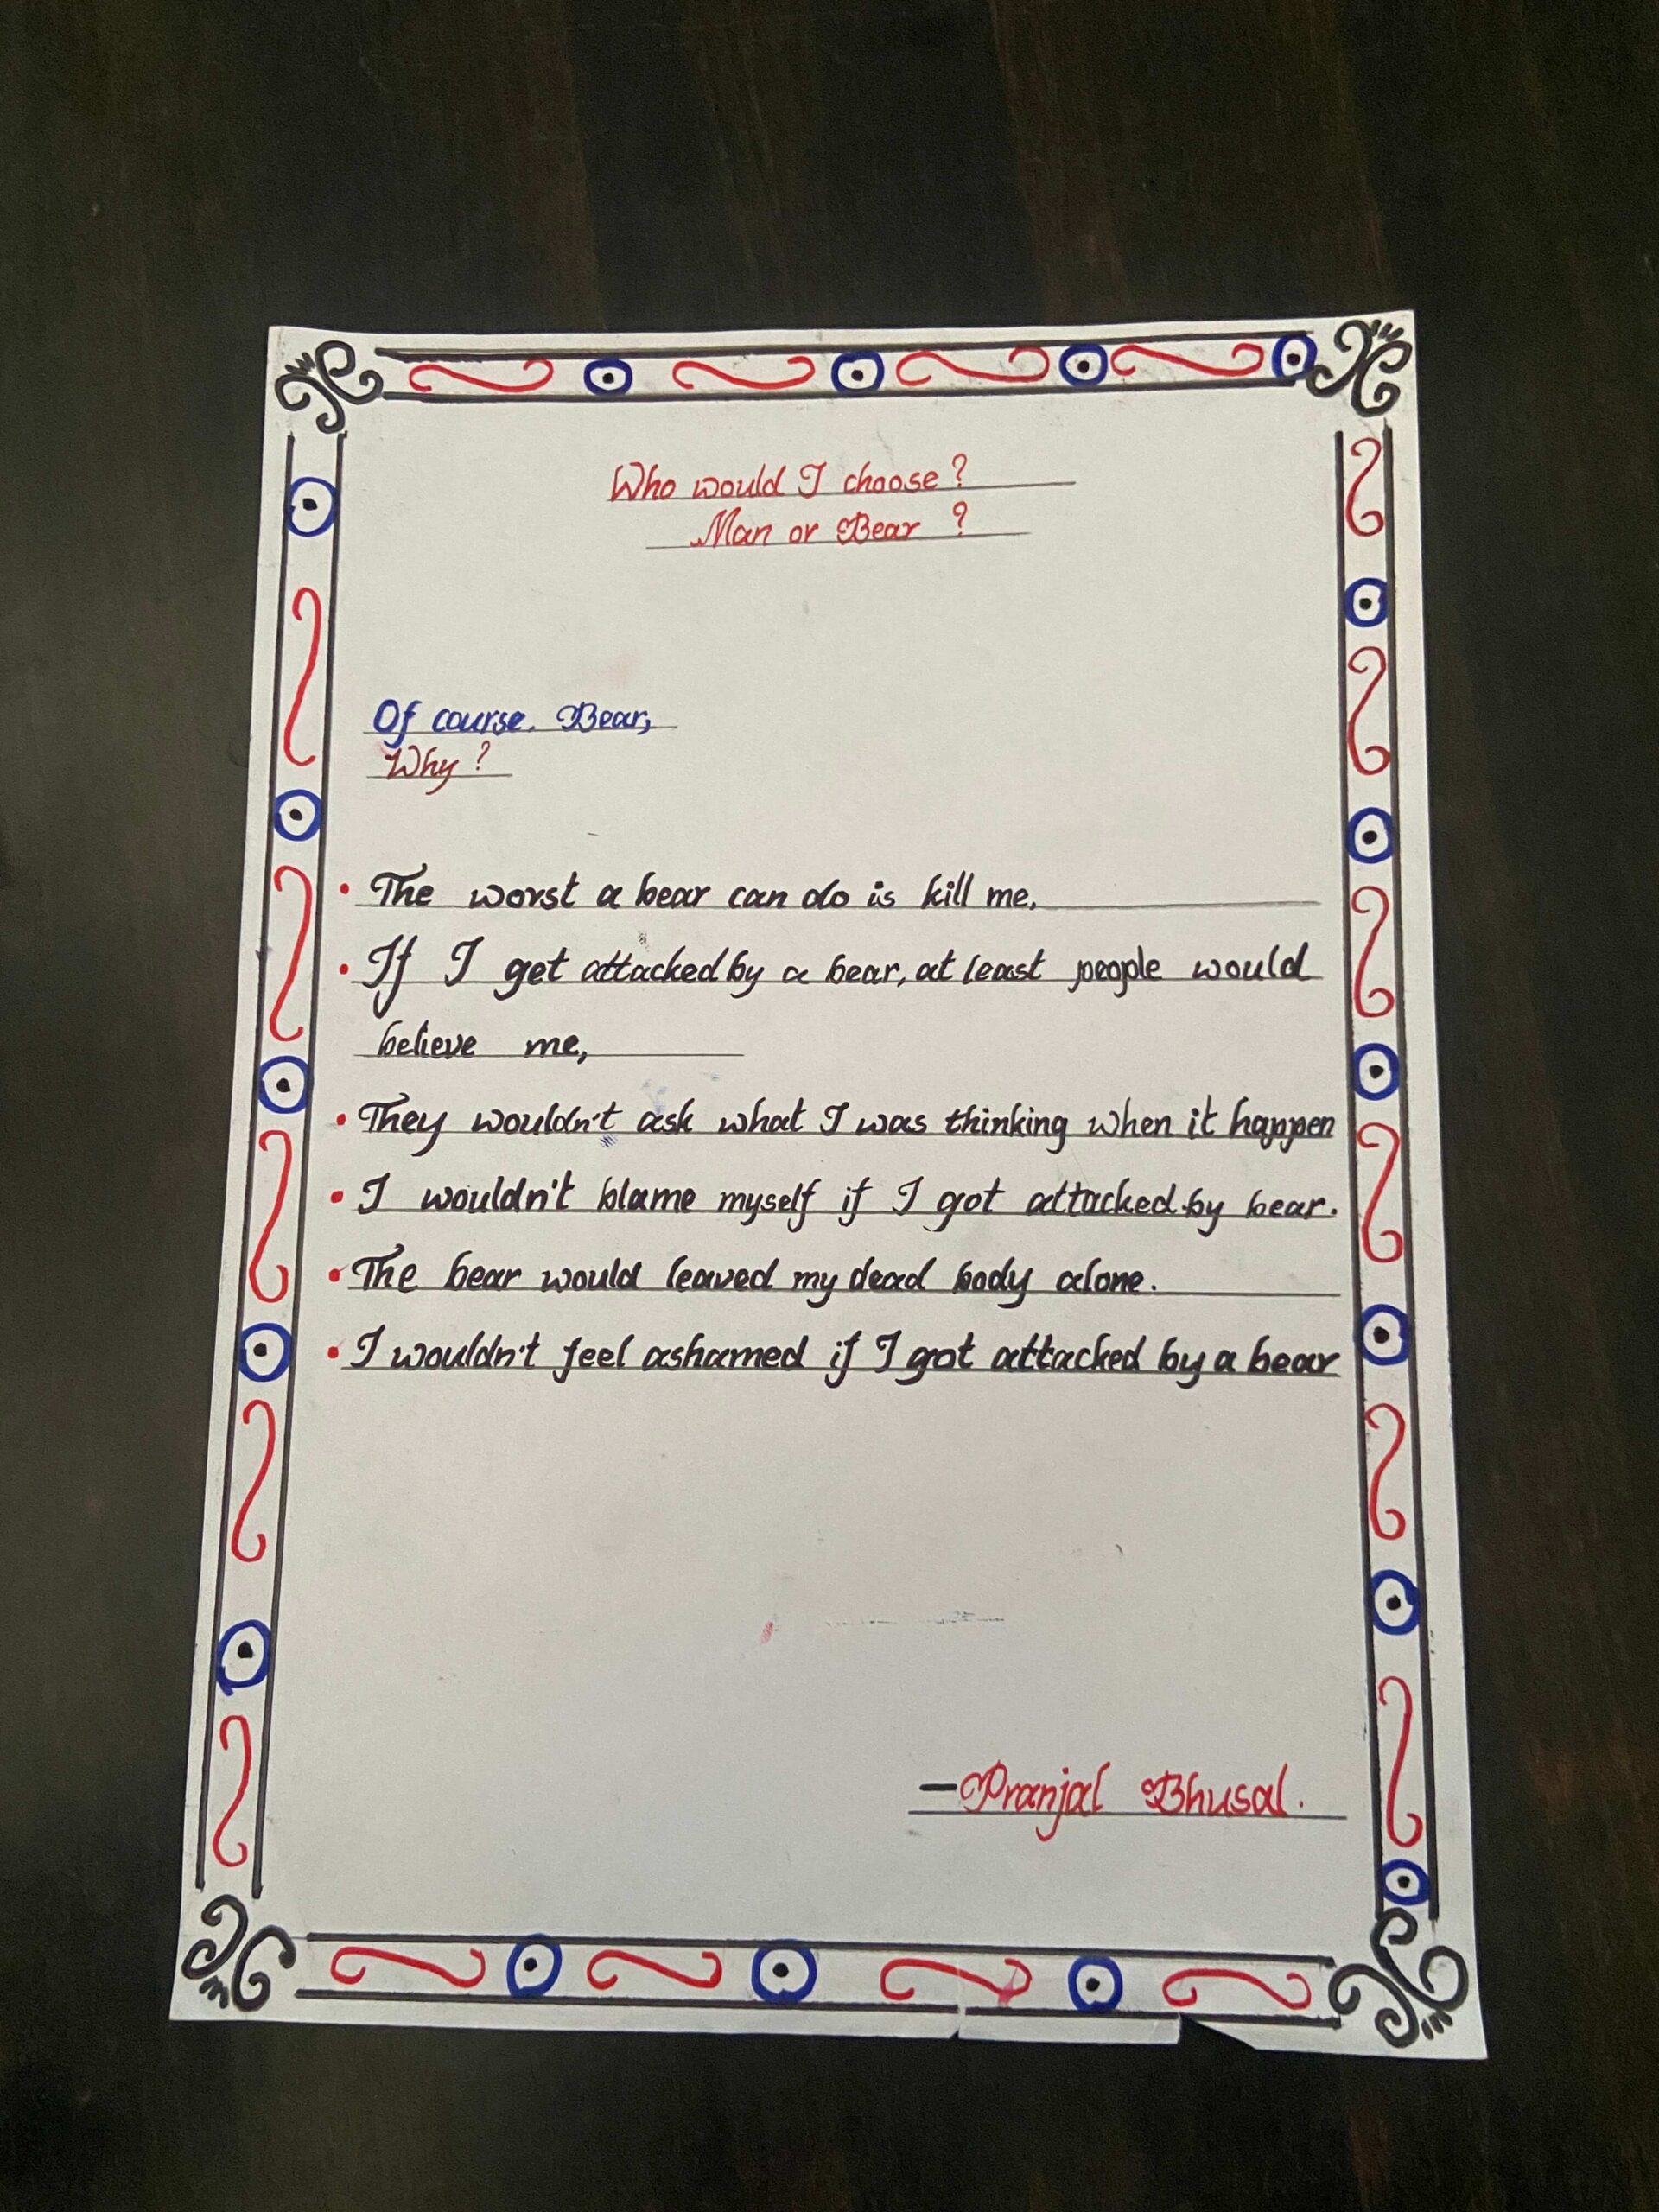 Who would I choose?
Man or Bear ?
Of course. Bear,
Why ?
• The worst a bear can do is kill me,
• If I get attacked by a bear, at least people would
believe me,
• They wouldn't ask what I was thinking when it happen
• I wouldn't blame myself if I got attacked by bear.
• The bear would leaved my dead body alone.
• I wouldn't feel ashamed if I got attacked by a bear
— Pranjal Bhusal.